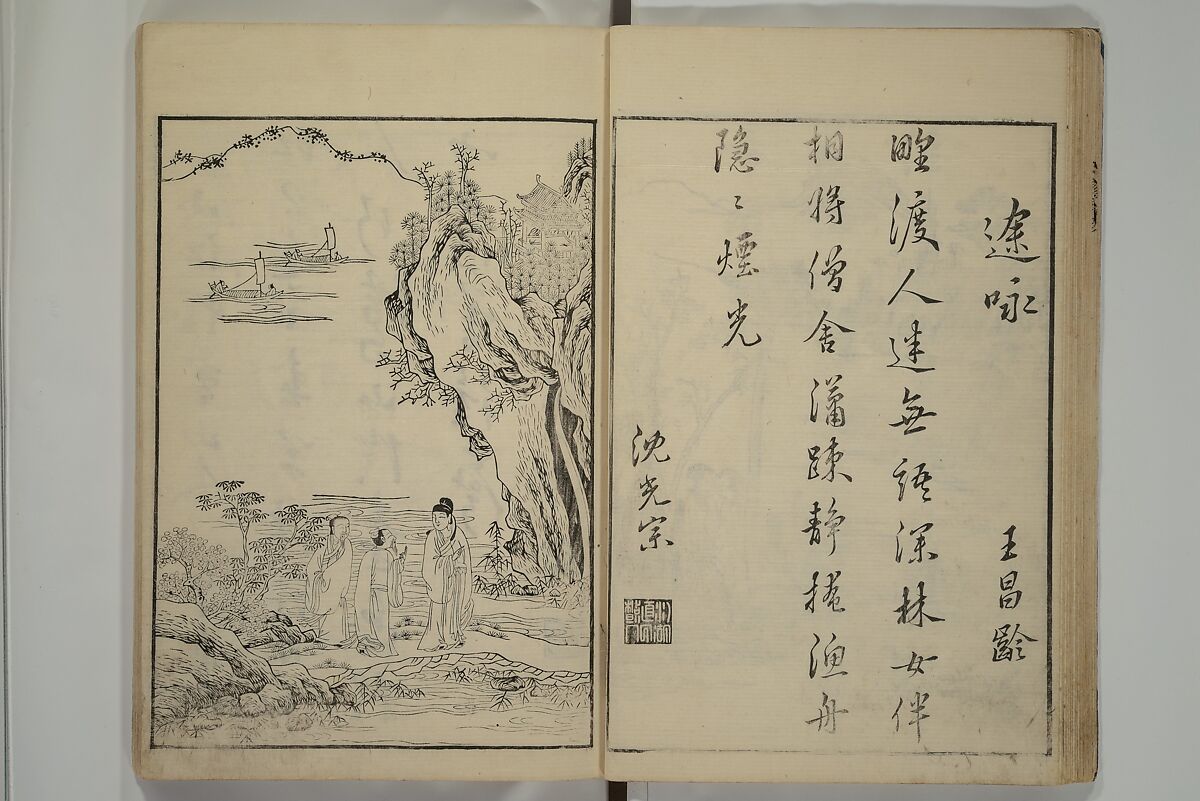 途咏
王昌齡
野渡人迷無語深林女伴
相將僧舍瀟疎靜掩漁舟
隱〻煙光
沈光宗